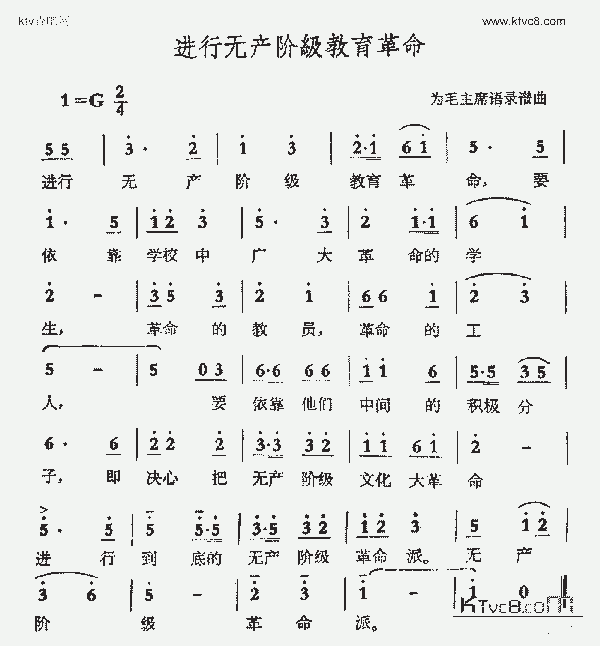 www.ktvc8.com
进行无产阶級教育革命
1=G 2/4
为毛主席语录谱曲
5 5 3· 2 1 3 2·1 6 1 4 5
进行 无 产 阶 级 教育 革 命, 要
1· 5 1 2 3 5· 3 2 1·1 6 1
依 靠 学校 中 广 大 革 命的 学
2 - 3 5 3 2 1 6 6 1 2 3
生, 革命 的 教 员, 革命 的 工
5 - 5 0 3 6·6 6 6 1 1 6 5·5 3 5
人, 要 依靠 他们 中间 的 积极 分
6· 6 2 2 2 3·3 3 2 1 1 6 1 2 -
子, 即 决心 把 无产 阶级 文化 大革 命
5· 5 5 5·5 3·5 3 2 1 2 3 5 1 2
进 行 到 底的 无产 阶级 革命 派。 无 产
3 6 5 - 2 3 1 - 1 0
阶 级 革 命 派。
KTvc8.com